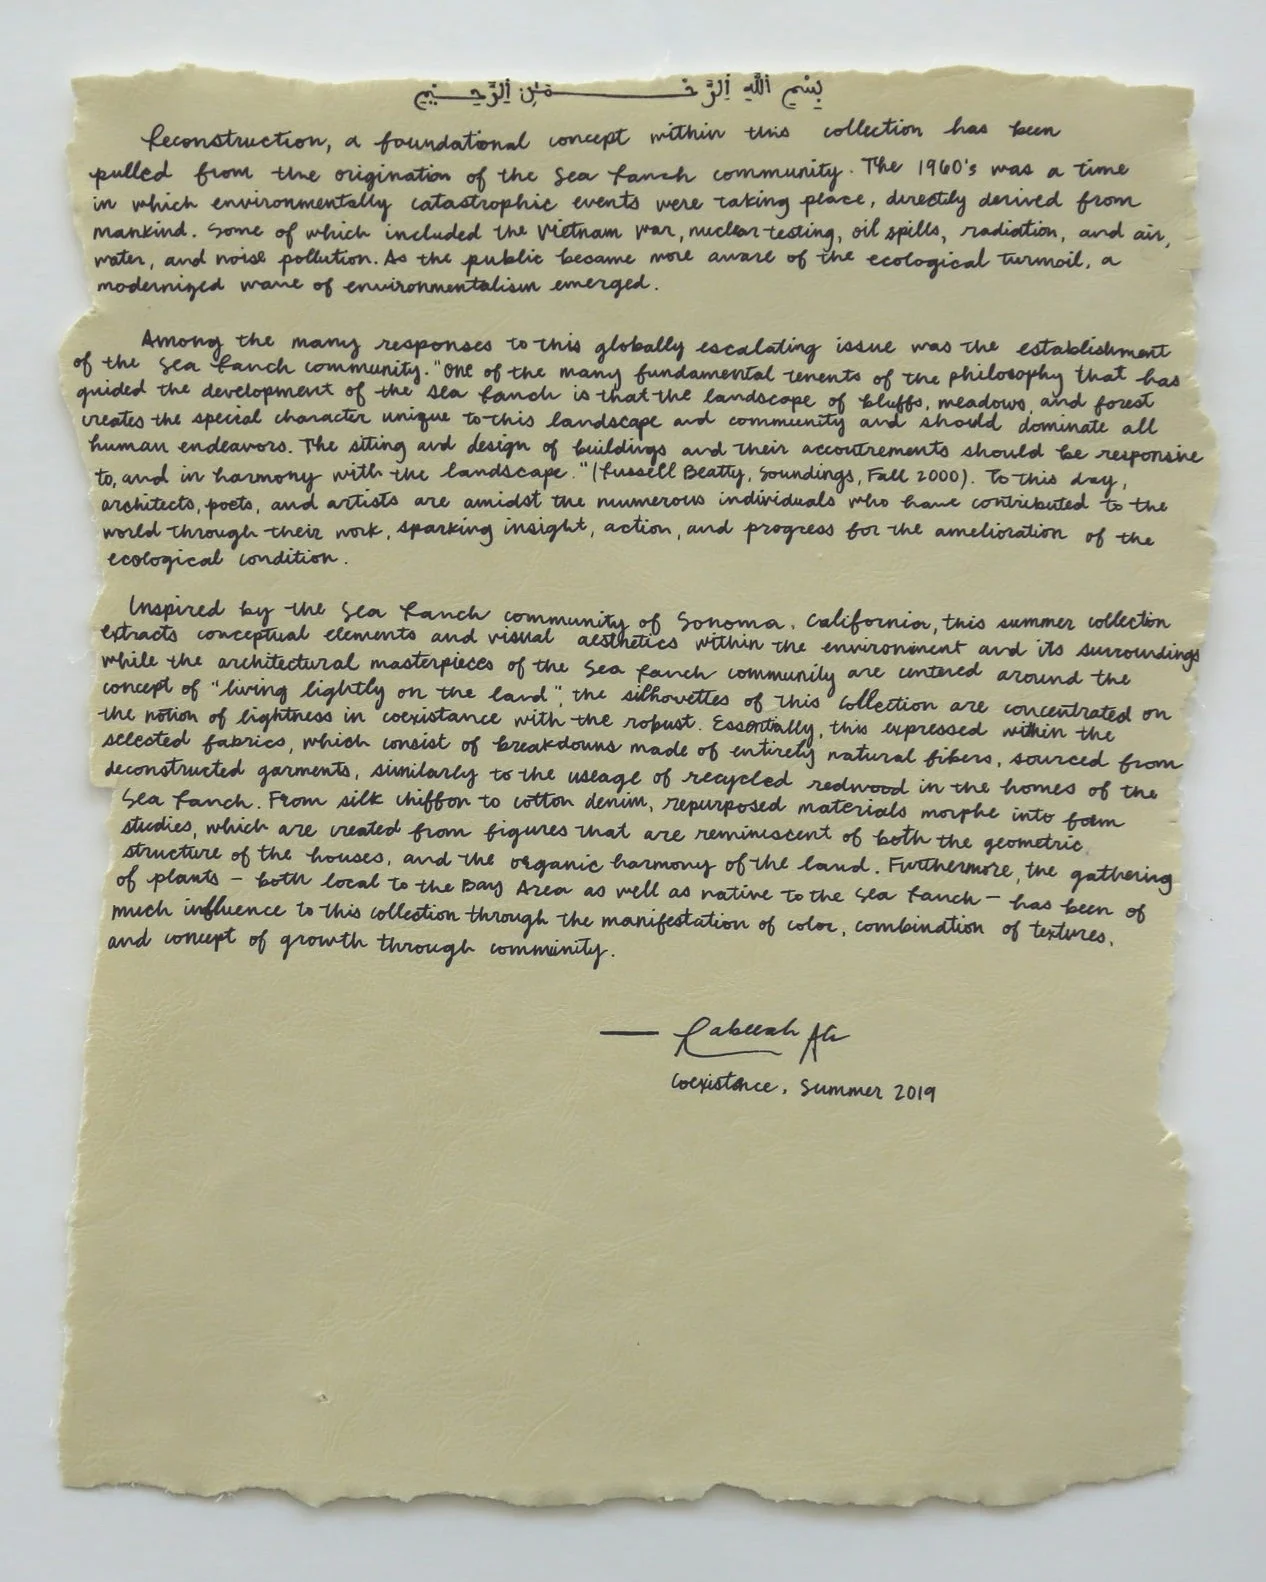 بِسْمِ اللّٰهِ الرَّحْمٰنِ الرَّحِيْمِ
Reconstruction, a foundational concept within this collection has been
pulled from the origination of the Sea Ranch community. The 1960's was a time
in which environmentally catastrophic events were taking place, directly derived from
mankind. Some of which included the Vietnam War, nuclear testing, oil spills, radiation, and air,
water, and noise pollution. As the public became more aware of the ecological turmoil, a
modernized wave of environmentalism emerged.
Among the many responses to this globally escalating issue was the establishment
of the Sea Ranch community. "One of the many fundamental tenents of the philosophy that has
guided the development of the Sea Ranch is that the landscape of bluffs, meadows, and forest
creates the special character unique to this landscape and community and should dominate all
human endeavors. The siting and design of buildings and their accoutrements should be responsive
to, and in harmony with the landscape." (Russell Beatty, Soundings, Fall 2000). To this day,
architects, poets, and artists are amidst the numerous individuals who have contributed to the
world through their work, sparking insight, action, and progress for the amelioration of the
ecological condition.
Inspired by the Sea Ranch community of Sonoma, California, this summer collection
extracts conceptual elements and visual aesthetics within the environment and its surroundings
while the architectural masterpieces of the Sea Ranch community are centered around the
concept of "living lightly on the land", the silhouettes of this collection are concentrated on
the notion of lightness in coexistance with the robust. Essentially, this expressed within the
selected fabrics, which consist of breakdowns made of entirely natural fibers, sourced from
deconstructed garments, similarly to the useage of recycled redwood in the homes of the
Sea Ranch. From silk chiffon to cotton denim, repurposed materials morphe into form
studies, which are created from figures that are reminiscent of both the geometric
structure of the houses, and the organic harmony of the land. Furthermore, the gathering
of plants – both local to the Bay Area as well as native to the Sea Ranch – has been of
much influence to this collection through the manifestation of color, combination of textures,
and concept of growth through community.
— Rabeeah Ali
Coexistance, Summer 2019